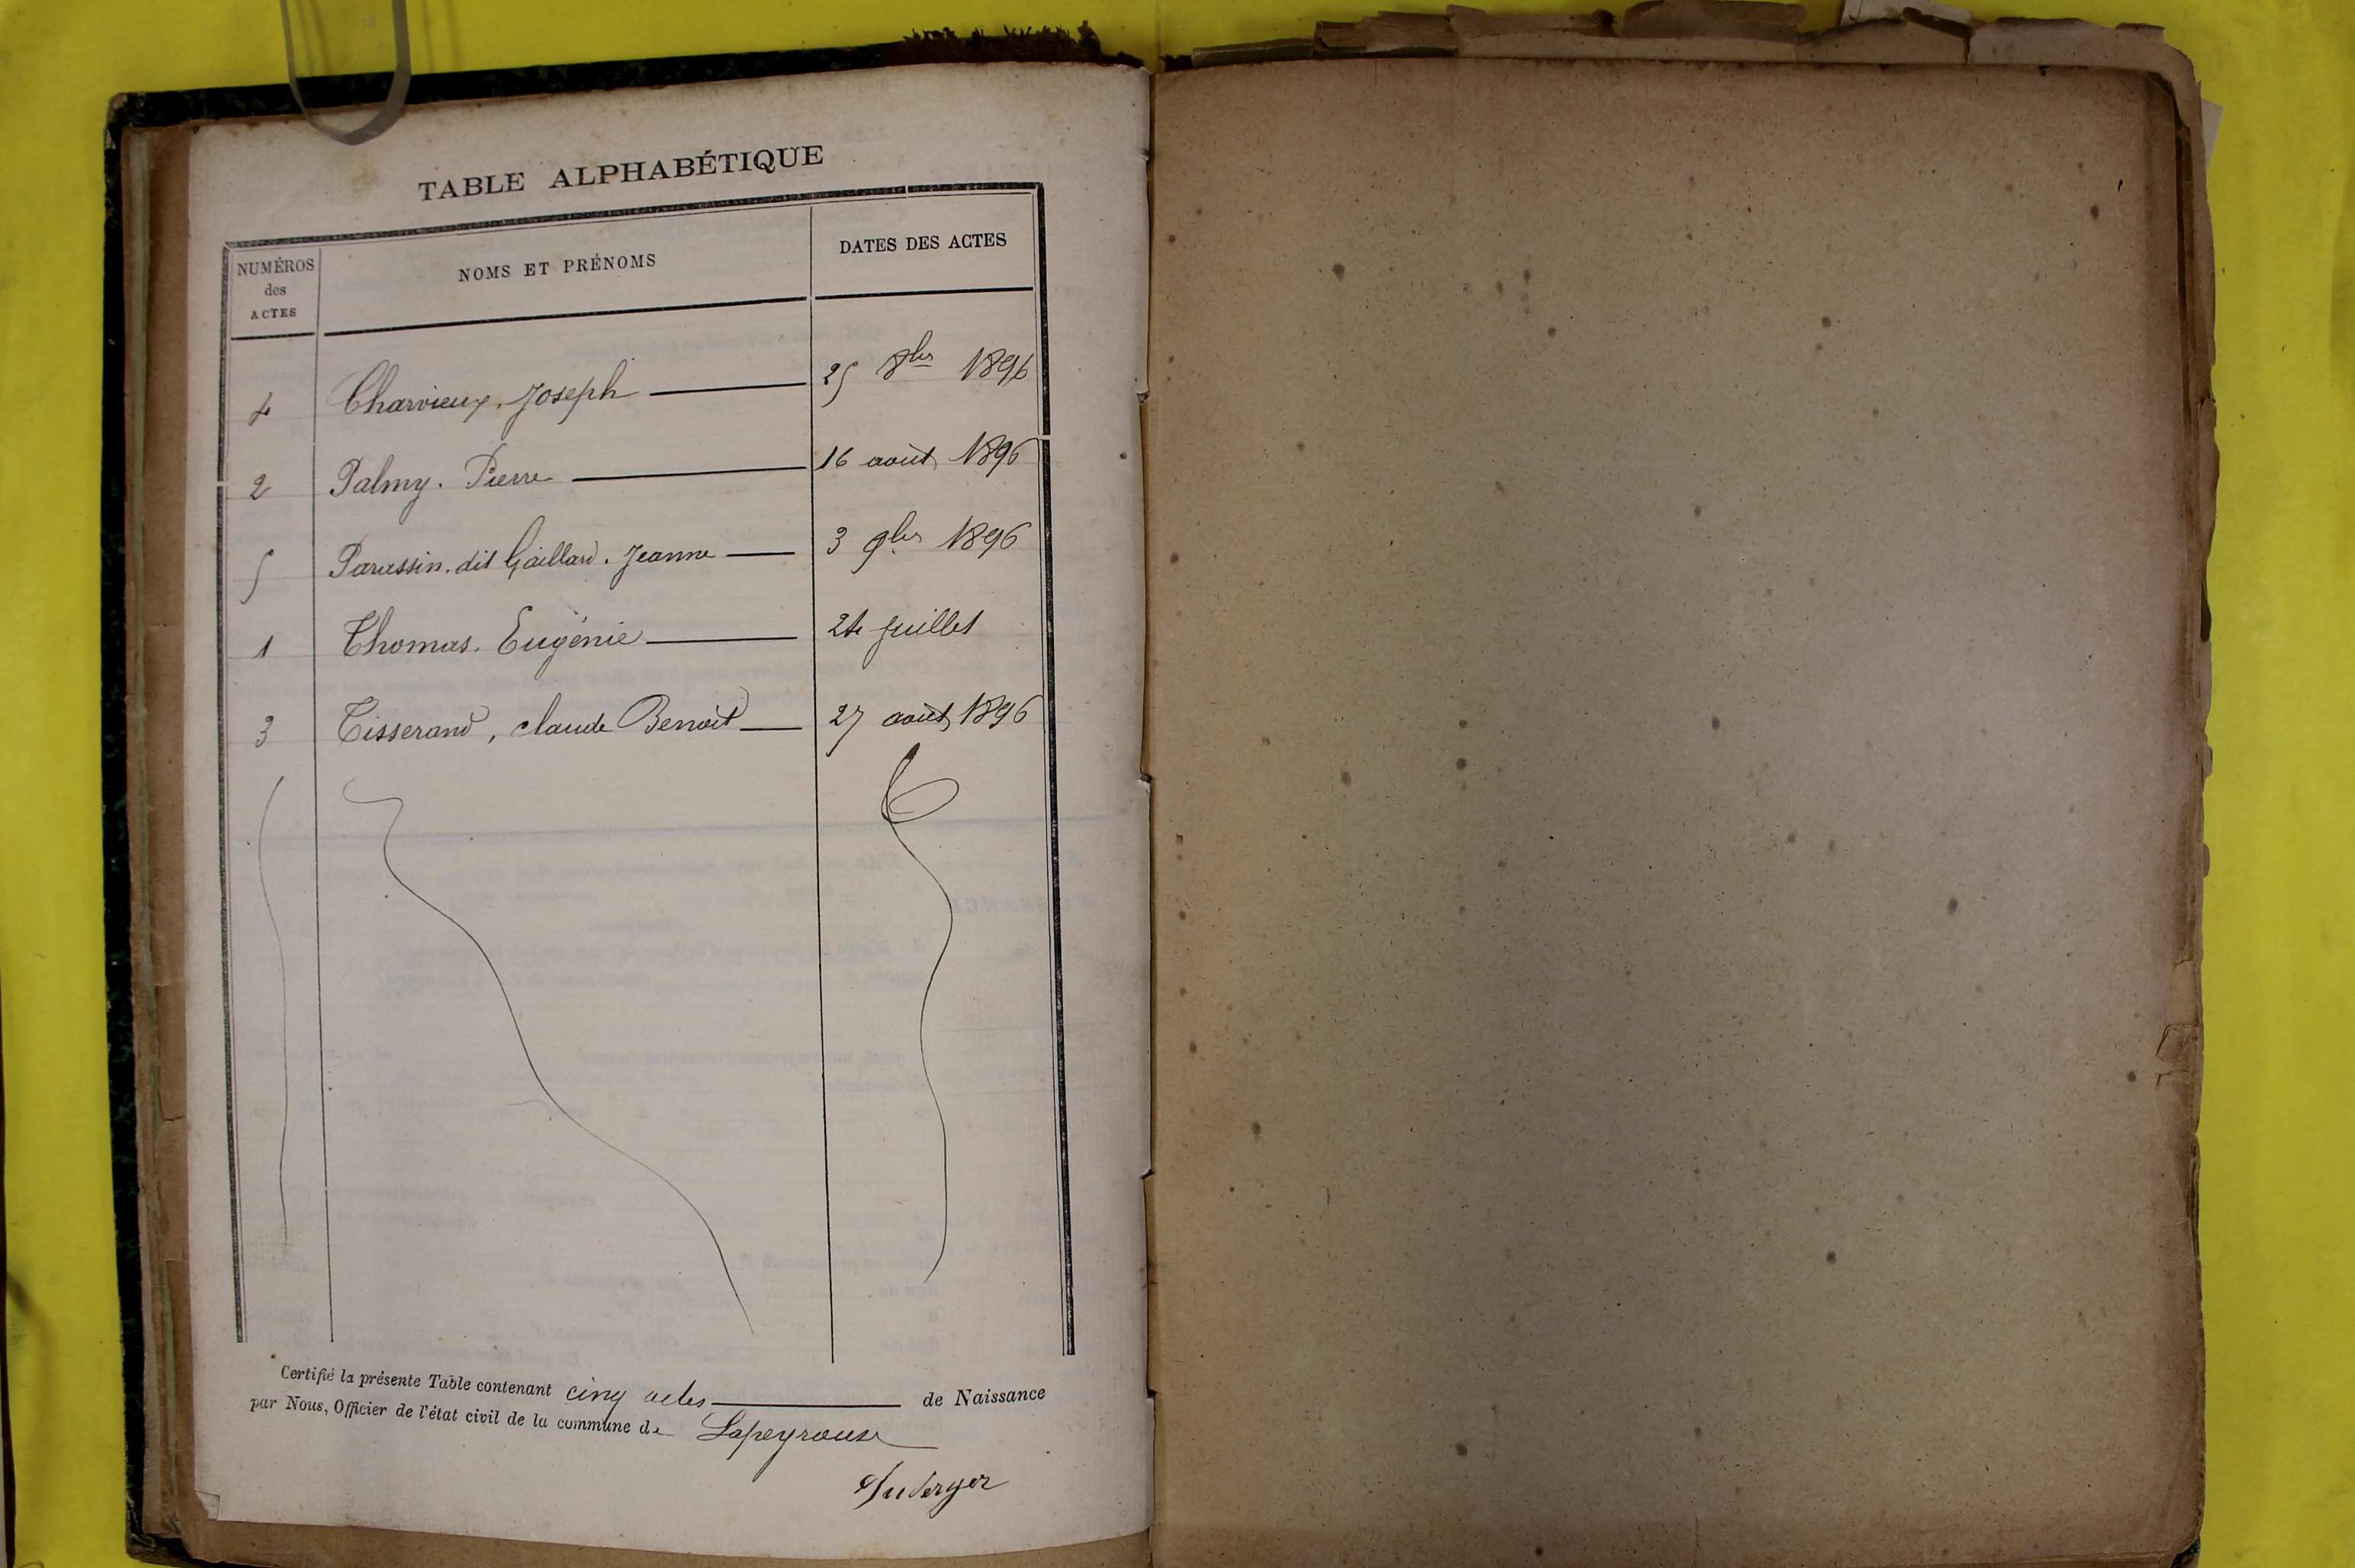 TABLE ALPHABÉTIQUE
NUMÉROS des ACTES
NOMS ET PRÉNOMS
DATES DES ACTES
4 Charvieux. Joseph 25 8bre 1896
2 Palmy. Pierre 16 août 1896
5 Parussin. dit Gaillard. Jeanne 3 9bre 1896
1 Thomas. Eugénie 24 juillet
3 Tisserand, claude Benoit 27 août 1896
Certifié la présente Table contenant cinq actes de Naissance
par Nous, Officier de l'état civil de la commune de Lapeyrouse